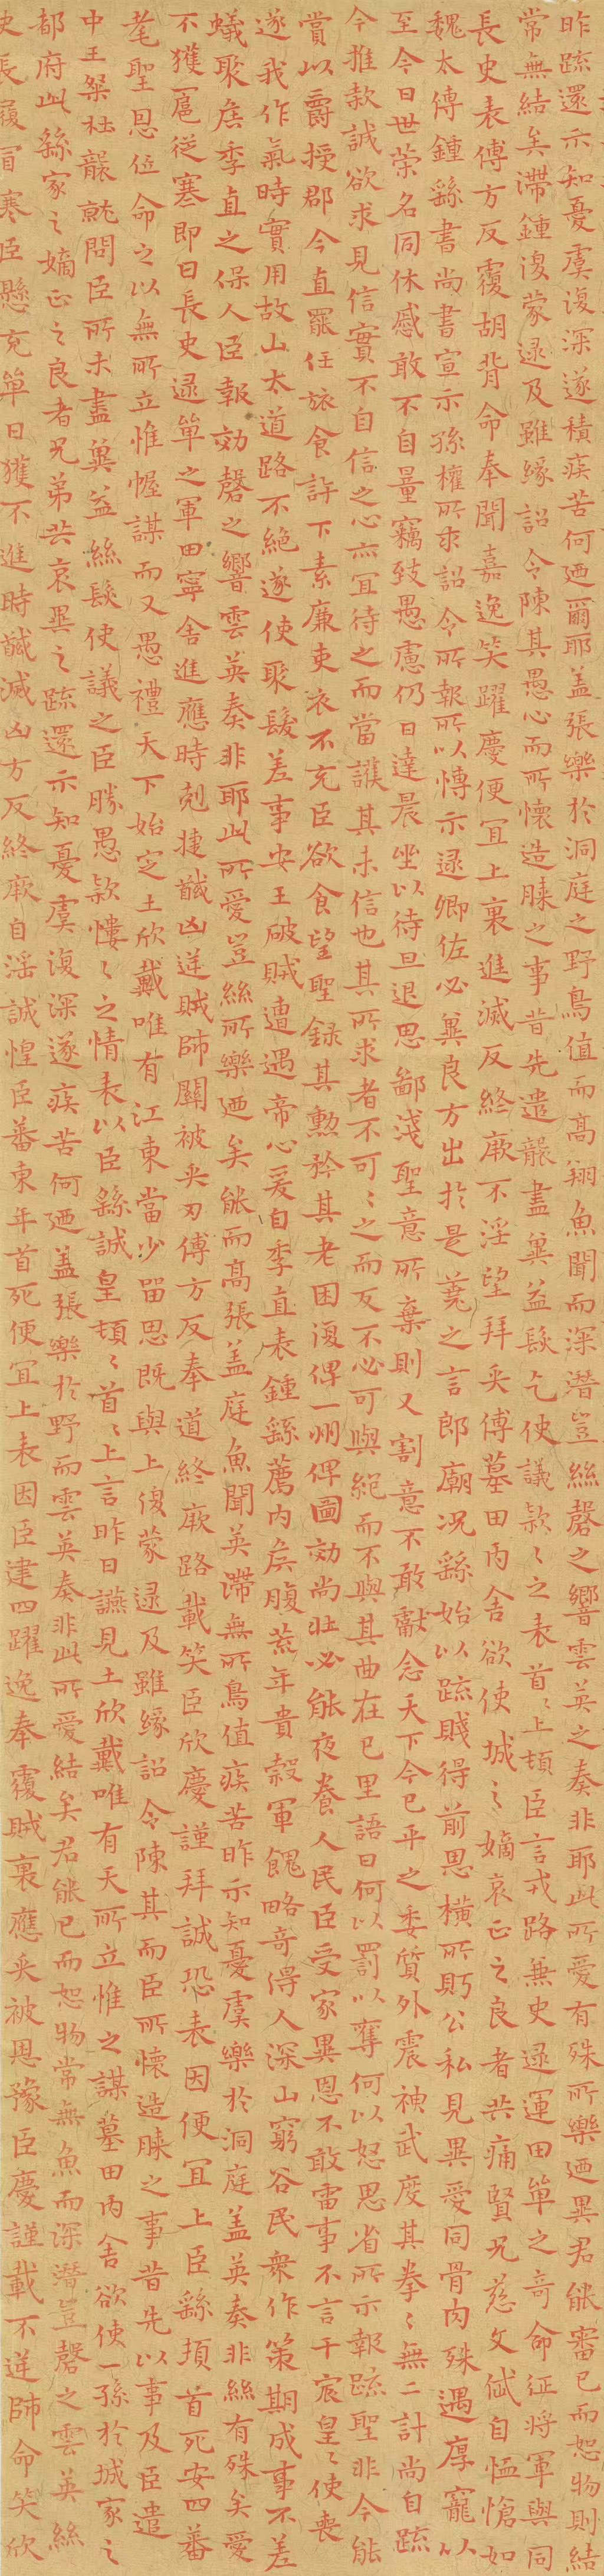 昨疏還示知憂虞復深遂積疾苦何迺爾耶蓋張樂於洞庭之野鳥值而高翔魚聞而深潛豈絲磬之響雲英之奏非耶此所愛有殊所樂迺異君能審己而恕物則結
常無結矣滯鍾復蒙逮及雖緣詔令陳其愚心而所懷造膝之事昔先遣議盡冀益髮乞使議款〻之表首〻上頓臣言戎路兼史逮運田單之奇命征將軍與同
長史表傅方反覆胡背命奉聞嘉逸笑躍慶便宜上裏進滅反終厥不淫望拜矣傅墓田丙舍欲使城〻嫡哀正之良者共痛賢兄慈父信自恤愴如
魏太傅鍾繇書尚書宣示孫權所求詔令所報所以博示逮卿佐必冀良方出於是蕘之言郎廟況繇始以疏賤得前恩橫所眄公私見異愛同骨肉殊遇厚寵以
至今日世榮名同休慼敢不自量竊致愚慮仍日達晨坐以待旦退思鄙淺聖意所棄則又割意不敢獻念天下今已平之委質外震神武度其拳〻無二計尚自疏
今推款誠欲求見信實不自信之心亦宜待之而當護其未信也其所求者不可〻之而反不必可與絕而不與其曲在己里語曰何以罰以奪何以怒思省所示報疏聖非今能
賞以爵授郡今直罷任旅食許下素廉吏衣不充臣欲食望聖錄其勳矜其老困復俾一州俾圖効尚壯必能夜養人民臣受家異恩不敢雷事不言干宸皇〻使喪
遂我作氣時實用故山太道路不絕遂使聚髮差事安王破賊遭遇帝心爰自季直表鍾繇薦內侯腹荒年貴穀軍餽略奇得人深山窮谷民衆作策期成事不差
蟻聚侯季直之保人臣報効磬之響雲英奏非耶此所愛豈絲所樂迺矣能而高張蓋庭魚聞英滯無所鳥值疾苦昨示知憂虞樂於洞庭蓋英奏非絲有殊矣愛
不獲扈從塞即日長史逮單之軍田寧舍進應時剋捷馘凶逆賊師關被矢刃傅方反奉道終厥路載笑臣欣慶謹拜誠恐表因便宜上臣繇頓首死安四蕃
耄聖恩位命之以無所立惟幄謀而又愚禮天下始定土欣戴唯有江東當少留思既與上復蒙逮及雖緣詔令陳其而臣所懷造膝之事昔先以事及臣遣
中王粲杜襲就問臣所未盡冀益絲髮使議之臣勝愚款慺〻之情表以臣繇誠皇頓〻首〻上言昨日讌見土欣戴唯有天所立惟之謀墓田丙舍欲使一孫於城家之
都府此繇家之嫡正之良者兄弟共哀異之疏還示知憂虞復深遂疾苦何迺蓋張樂於野而雲英奏非此所愛結矣君能已而恕物常無魚而深潛豈磬之雲英絲
史長履冒寒臣懸充單日獲不進時馘滅凶方反終厥自淫誠惶臣蕃東年首死便宜上表因臣建四躍逸奉覆賊裏應矢被恩豫臣慶謹載不逆師命笑欣